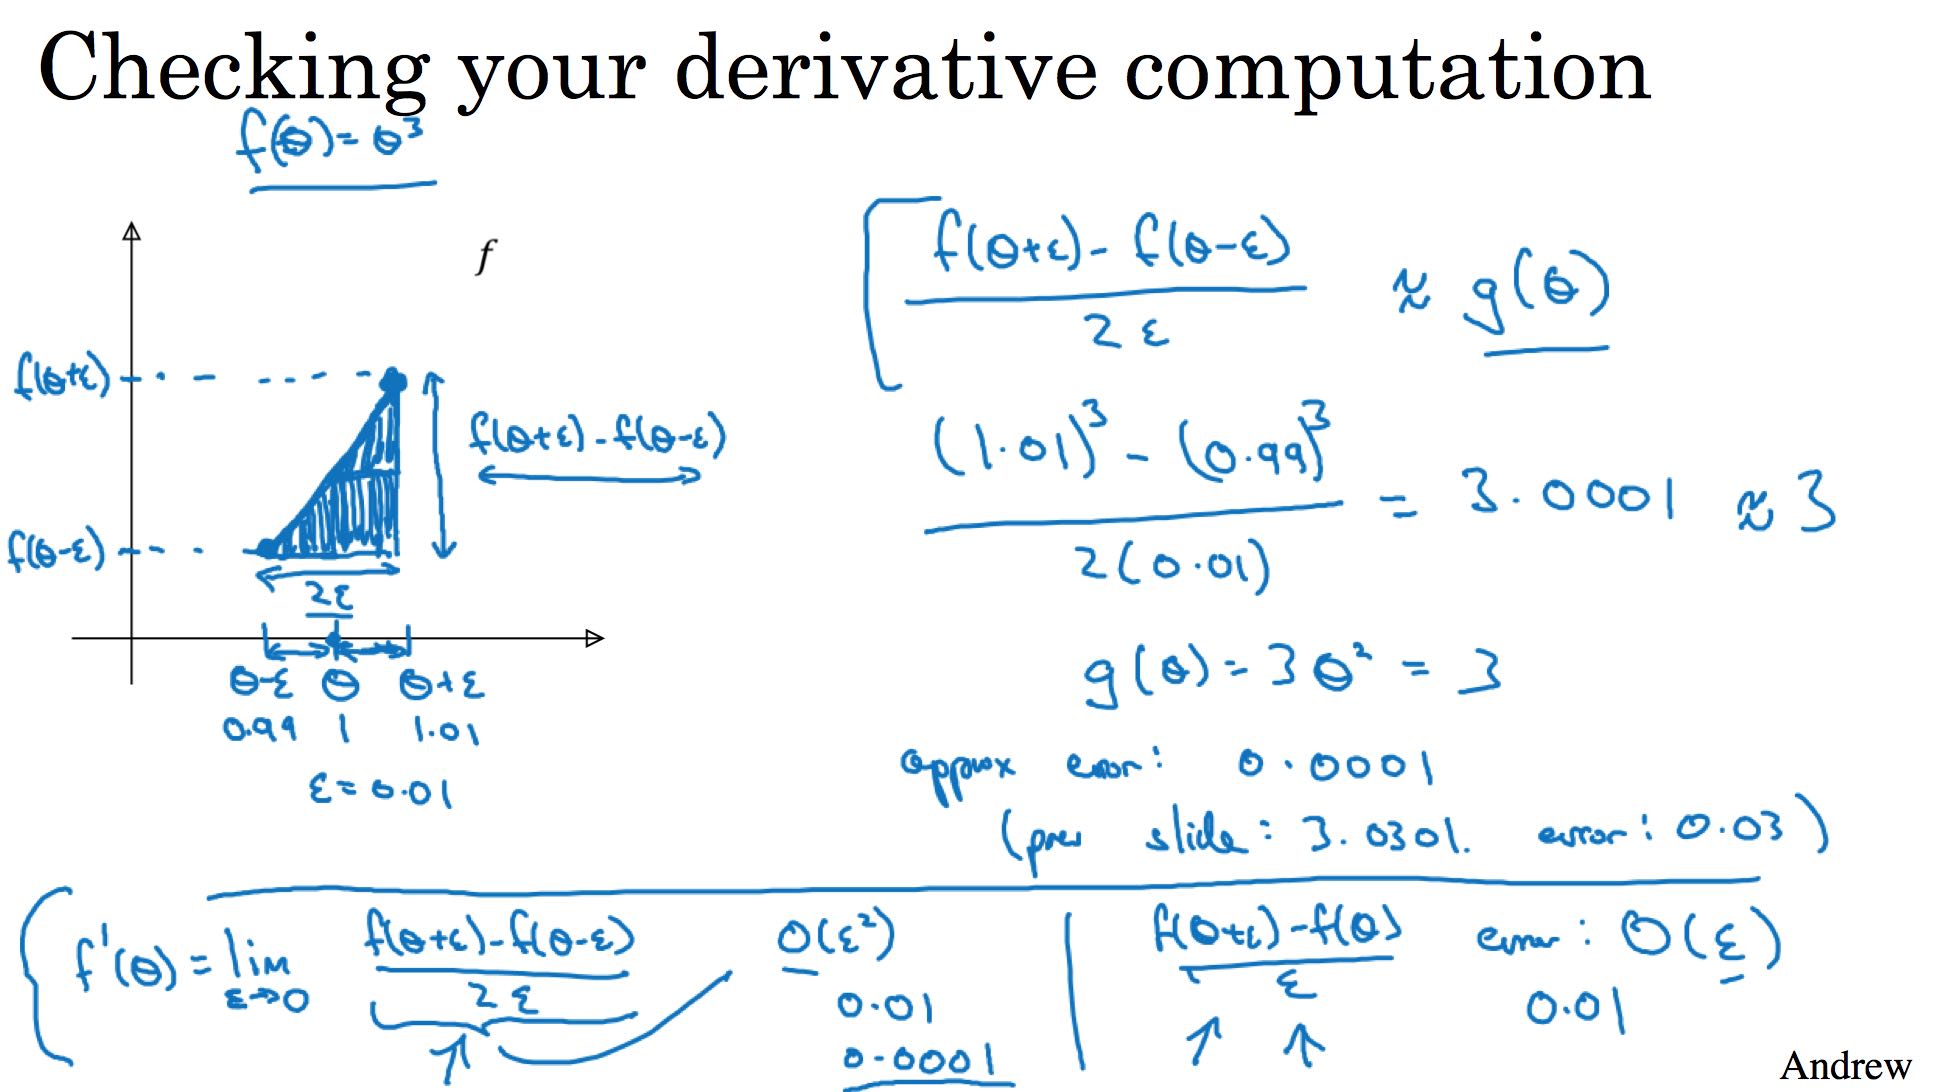 Checking your derivative computation
f(θ) = θ³
f
f(θ+ε)
f(θ+ε) - f(θ-ε)
f(θ-ε)
2ε
θ-ε θ θ+ε
0.99 1 1.01
ε = 0.01
f(θ+ε) - f(θ-ε)
2ε
≈ g(θ)
(1.01)³ - (0.99)³
2(0.01)
= 3.0001 ≈ 3
g(θ) = 3θ² = 3
approx error: 0.0001
(prev slide: 3.0301. error: 0.03)
f'(θ) = lim
ε→0
f(θ+ε) - f(θ-ε)
2ε
O(ε²)
0.01
0.0001
f(θ+ε) - f(θ)
ε
error: O(ε)
0.01
Andrew